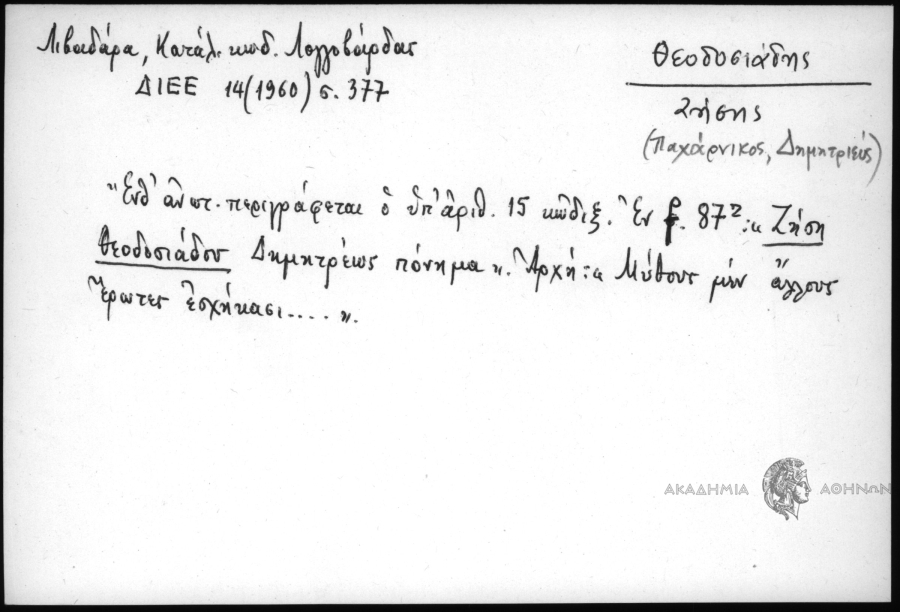 Λιβαδάρα, Κατάλ. κωδ. Λογγοβάρδας
ΔΙΕΕ 14(1960) σ. 377
Θεοδοσιάδης
Ζήσης
(Παχάρνικος, Δημητριεύς)
"Ἐνθ' ἀνωτ. περιγράφεται ὁ ὑπ' ἀριθ. 15 κῶδιξ. Ἐν f. 87²: « Ζήση
Θεοδοσιάδου Δημητρέως πόνημα ». Ἀρχή: « Μύθους μὲν ἄλλους
Ἔρωτες ἐσχήκασι..... ».
ΑΚΑΔΗΜΙΑ ΑΘΗΝΩΝ